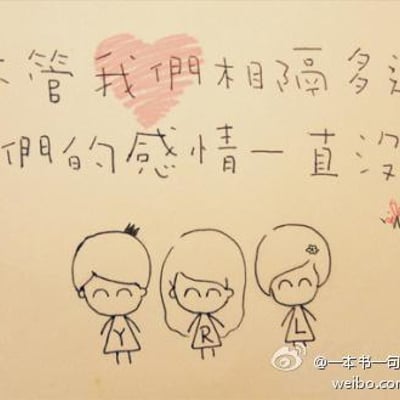 不管我們相隔多遠
們的感情一直沒
Y R L
@一本书一句
weibo.com